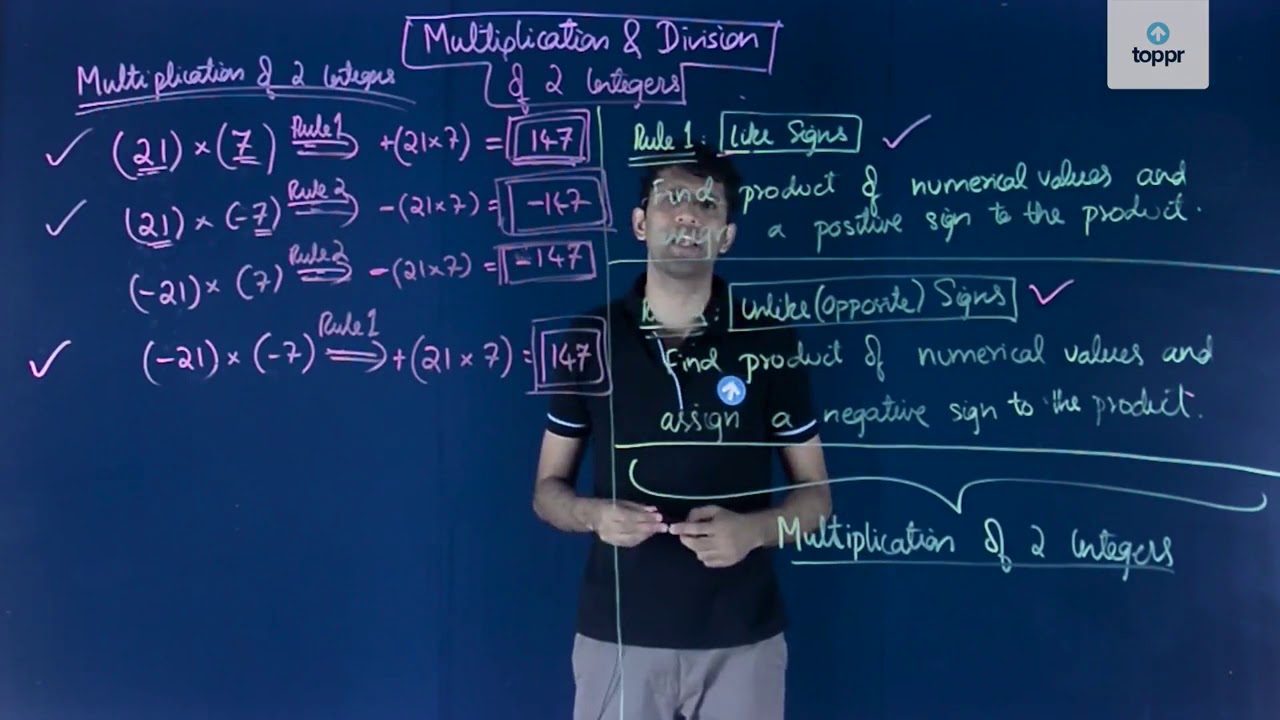 Multiplication & Division
of 2 Integers
toppr
Multiplication of 2 Integers
(21) × (7) Rule 1 +(21×7) = 147
(21) × (-7) Rule 2 -(21×7) = -147
(-21) × (7) Rule 2 -(21×7) = -147
(-21) × (-7) Rule 1 +(21 × 7) = 147
Rule 1: Like Signs
Find product of numerical values and
a positive sign to the product.
: Unlike (Opposite) Signs
Find product of numerical values and
assign a negative sign to the product.
Multiplication of 2 Integers